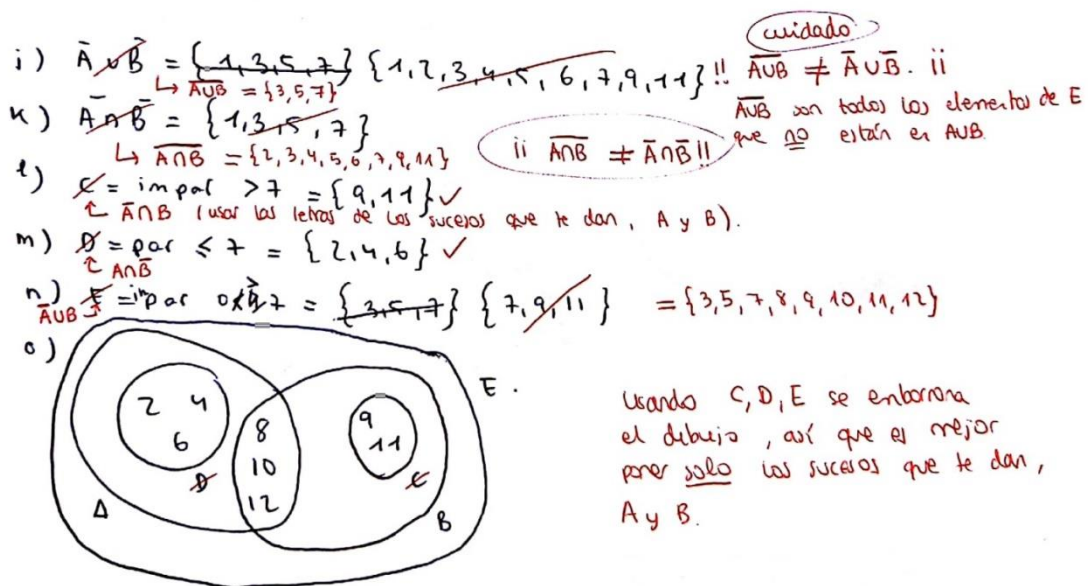 cuidado
j) Ā∪B̄ = {1,3,5,7} {1,2,3,4,5,6,7,9,11} !! A̅U̅B̅ ≠ Ā∪B̄. ¡¡
↳ A̅U̅B̅ = {3,5,7}
A̅U̅B̅ son todos los elementos de E
que no están en AUB.
k) Ā∩B̄ = {1,3,5,7}
↳ A̅∩̅B̅ = {2,3,4,5,6,7,9,11}
¡¡ A̅∩̅B̅ ≠ Ā∩B̄ !!
l) C = impar >7 = {9,11} ✓
Ā∩B (usar las letras de los sucesos que te dan, A y B).
m) D = par ≤ 7 = {2,4,6} ✓
A∩B̄
n) E = impar o 7 = {3,5,7} {7,9,11} = {3,5,7,8,9,10,11,12}
ĀUB
o)
E.
2 4
6
8
10
12
9
11
D
C
A
B
Usando C, D, E se emborrona
el dibujo, así que es mejor
poner solo los sucesos que te dan,
A y B.